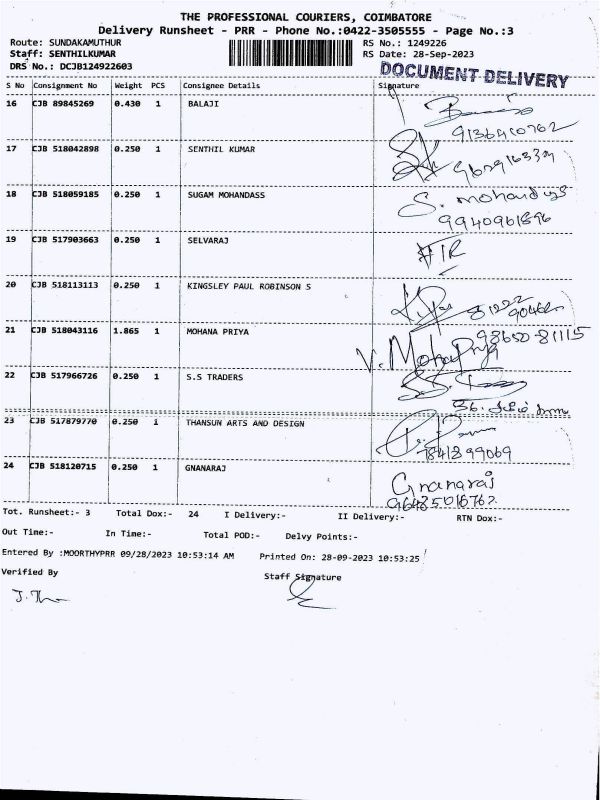 THE PROFESSIONAL COURIERS, COIMBATORE
Delivery Runsheet - PRR - Phone No.:0422-3505555 - Page No.:3
Route: SUNDAKAMUTHUR RS No.: 1249226
Staff: SENTHILKUMAR RS Date: 28-Sep-2023
DRS No.: DCJB124922603 DOCUMENT DELIVERY
S No Consignment No Weight PCS Consignee Details Signature
16 CJB 89845269 0.430 1 BALAJI
17 CJB 518042898 0.250 1 SENTHIL KUMAR
18 CJB 518059185 0.250 1 SUGAM MOHANDASS
S. mohandass
19 CJB 517903663 0.250 1 SELVARAJ
20 CJB 518113113 0.250 1 KINGSLEY PAUL ROBINSON S
21 CJB 518043116 1.865 1 MOHANA PRIYA
98650-81115
V. Mohanapriya
22 CJB 517966726 0.250 1 S.S TRADERS
23 CJB 517879770 0.250 1 THANSUN ARTS AND DESIGN
7841899069
24 CJB 518120715 0.250 1 GNANARAJ
Gnanaraj
Tot. Runsheet:- 3 Total Dox:- 24 I Delivery:- II Delivery:- RTN Dox:-
Out Time:- In Time:- Total POD:- Delvy Points:-
Entered By :MOORTHYPRR 09/28/2023 10:53:14 AM Printed On: 28-09-2023 10:53:25
Verified By Staff Signature